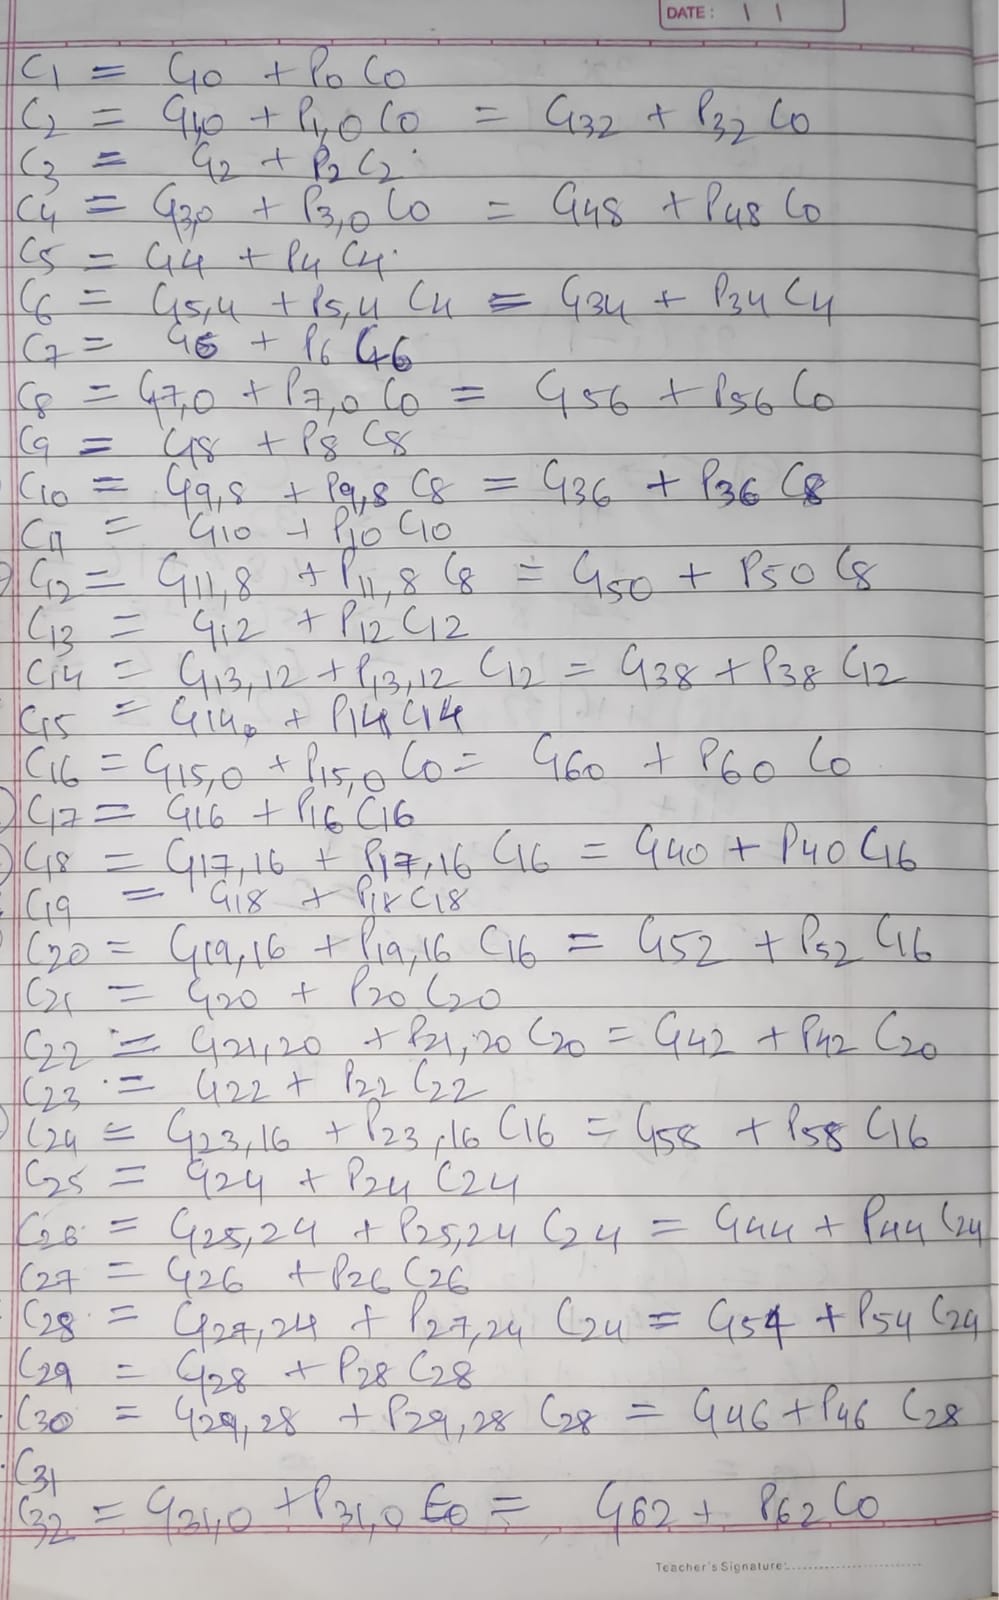 DATE:
C1 = G0 + P0 C0
C2 = G1,0 + P1,0 C0 = G32 + P32 C0
C3 = G2 + P2 C2
C4 = G3,0 + P3,0 C0 = G48 + P48 C0
C5 = G4 + P4 C4
C6 = G5,4 + P5,4 C4 = G34 + P34 C4
C7 = G6 + P6 C6
C8 = G7,0 + P7,0 C0 = G56 + P56 C0
C9 = G8 + P8 C8
C10 = G9,8 + P9,8 C8 = G36 + P36 C8
C11 = G10 + P10 C10
C12 = G11,8 + P11,8 C8 = G50 + P50 C8
C13 = G12 + P12 C12
C14 = G13,12 + P13,12 C12 = G38 + P38 C12
C15 = G14 + P14 C14
C16 = G15,0 + P15,0 C0 = G60 + P60 C0
C17 = G16 + P16 C16
C18 = G17,16 + P17,16 C16 = G40 + P40 C16
C19 = G18 + P18 C18
C20 = G19,16 + P19,16 C16 = G52 + P52 C16
C21 = G20 + P20 C20
C22 = G21,20 + P21,20 C20 = G42 + P42 C20
C23 = G22 + P22 C22
C24 = G23,16 + P23,16 C16 = G58 + P58 C16
C25 = G24 + P24 C24
C26 = G25,24 + P25,24 C24 = G44 + P44 C24
C27 = G26 + P26 C26
C28 = G27,24 + P27,24 C24 = G54 + P54 C24
C29 = G28 + P28 C28
C30 = G29,28 + P29,28 C28 = G46 + P46 C28
C31
C32 = G31,0 + P31,0 C0 = G62 + P62 C0
Teacher's Signature: